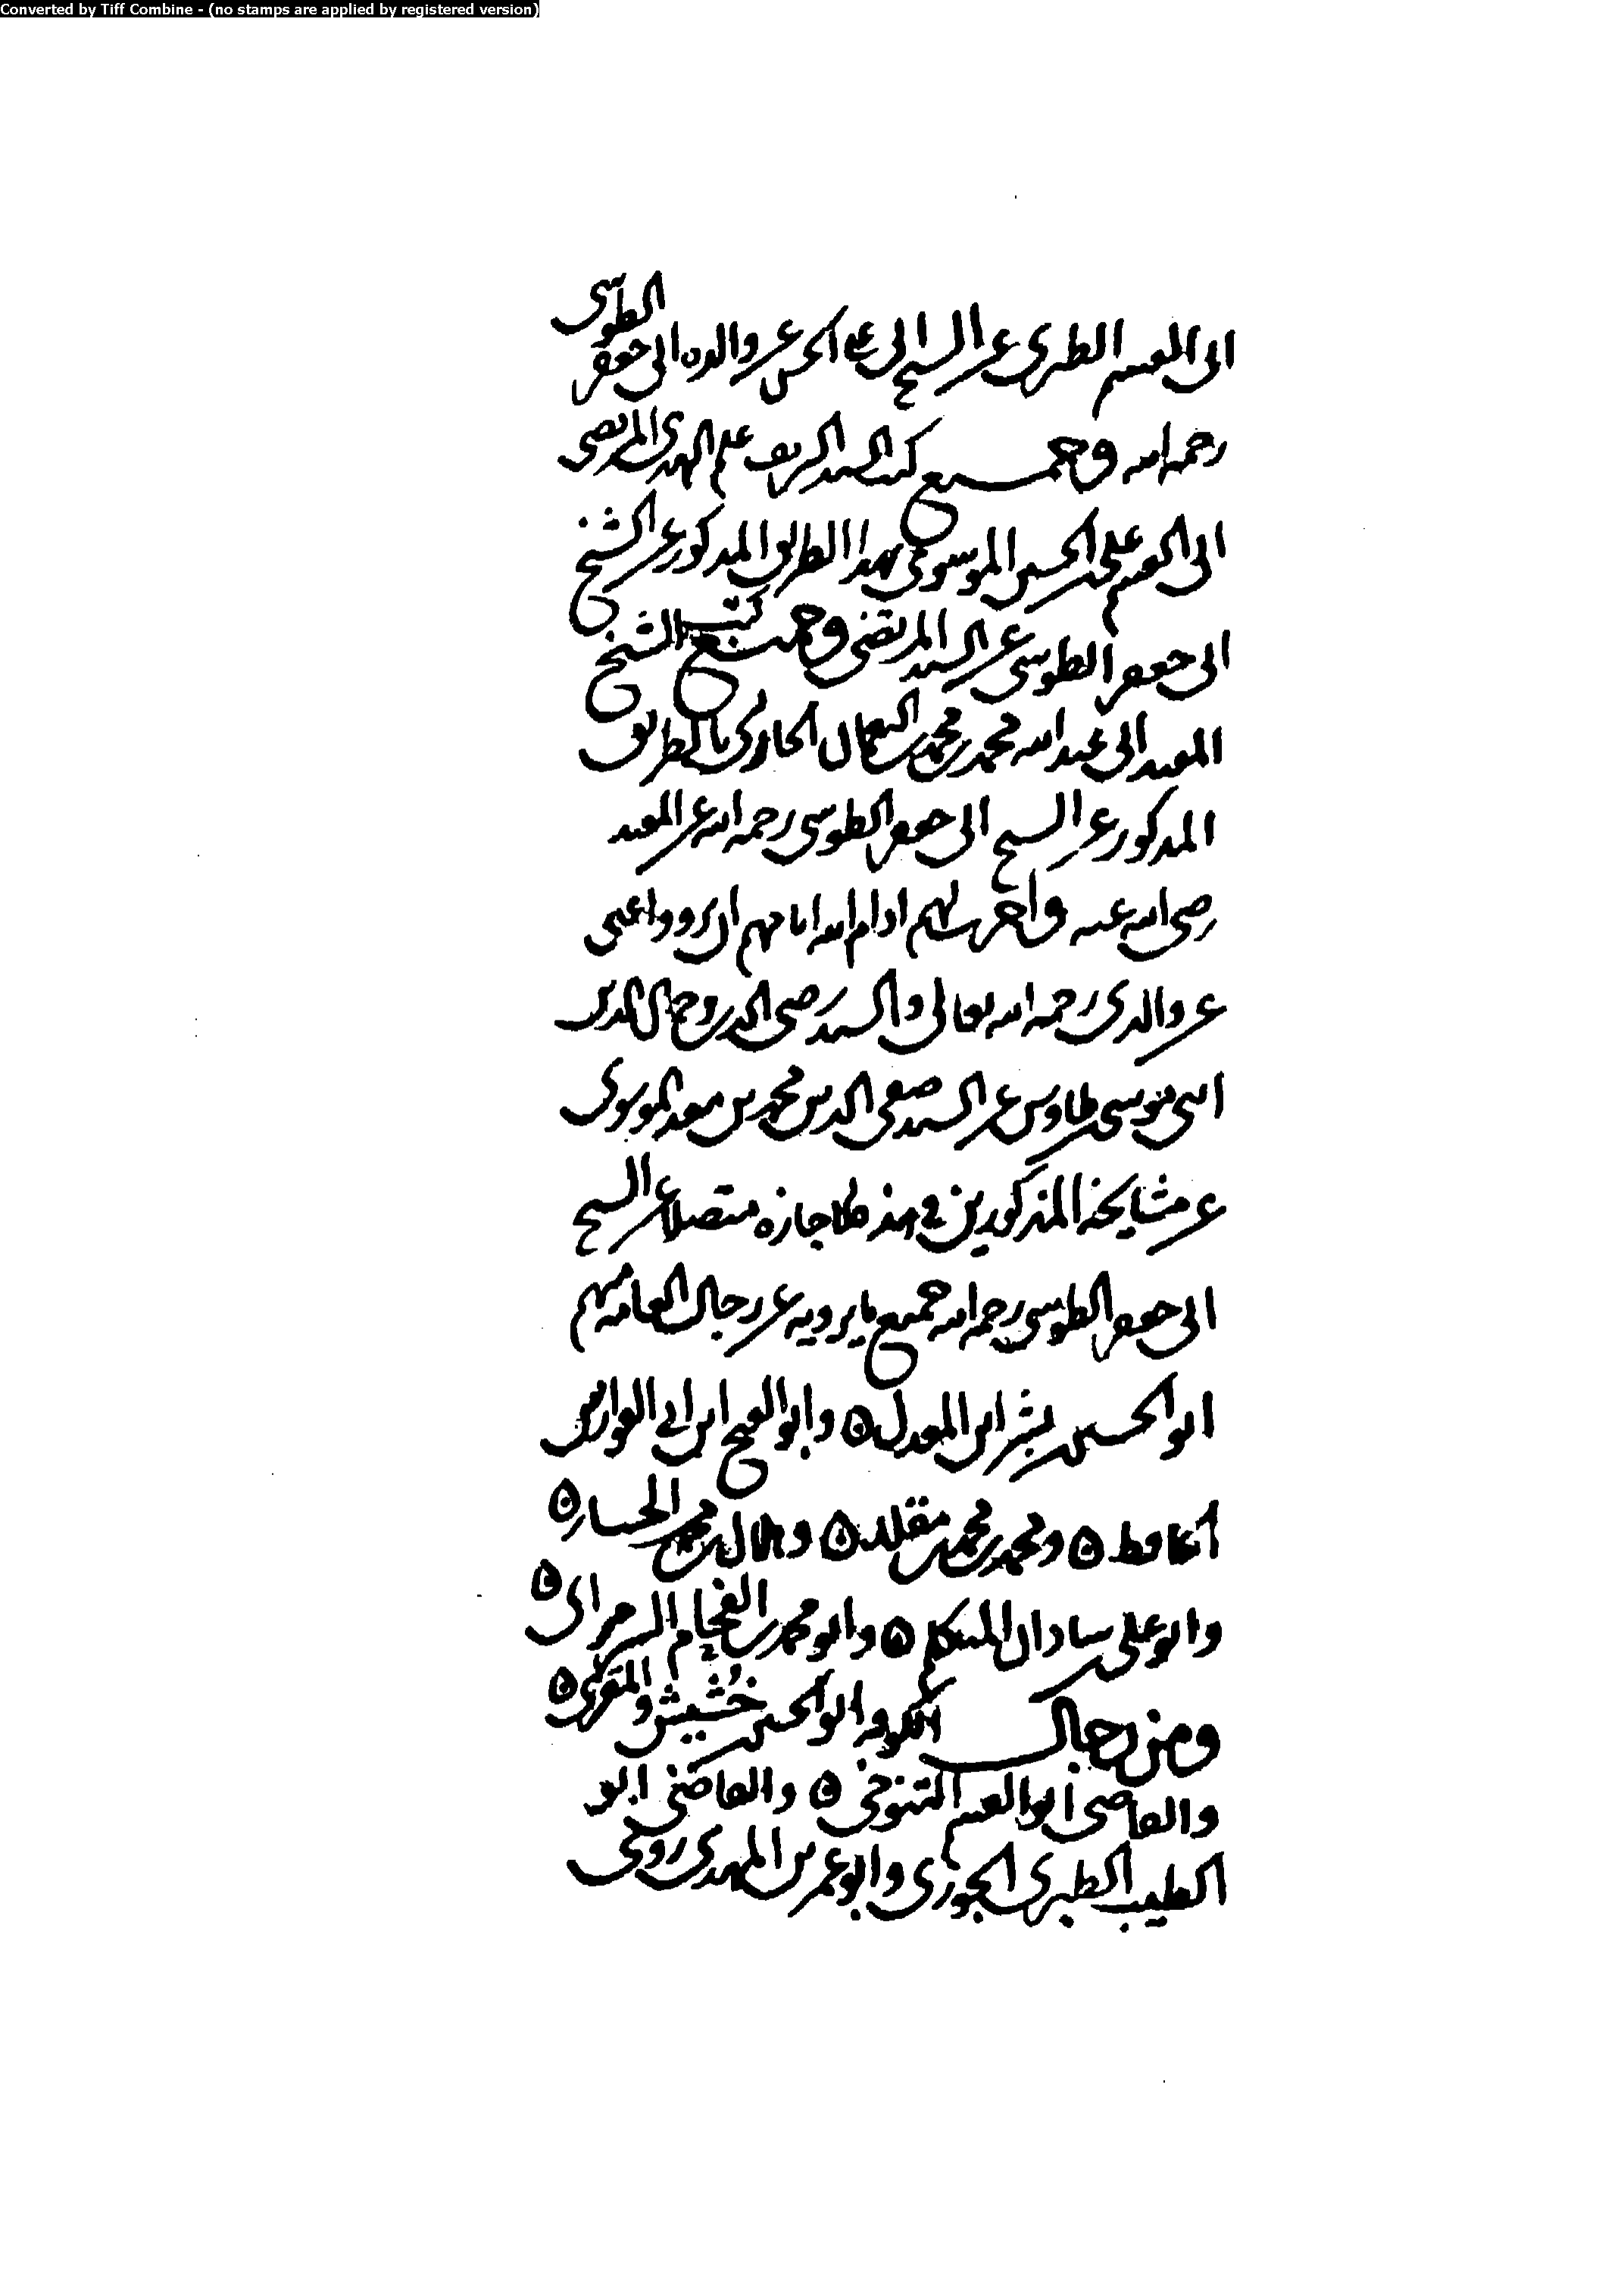 Converted by Tiff Combine - (no stamps are applied by registered version)
ابى القسم الطبرى عن الشيخ ابى على الحسن عن والده ابى جعفر الطوسى
رحمه الله وجميع كتب السيد الشريف علم الهدى المرتضى
ابى القسم على بن الحسين الموسوى بهذا الطريق المذكور عن الشيخ
ابى جعفر الطوسى عن السيد المرتضى وجميع كتب الشيخ
المفيد ابى عبد الله محمد بن محمد بن النعمان الحاركى بالطريق
المذكور عن الشيخ ابى جعفر الطوسى رحمه الله عن المفيد
رضى الله عنه واجزت لهم ادام الله ايامهم ان يرووا عنى
عن والدى رحمه الله تعالى والسيد رضى الدين وجمال الدين
ابنى موسى بن طاوس عن السيد صفى الدين محمد بن معد الموسوى
عن مشايخه المذكورين فى هذه الاجازة متصلا عن الشيخ
ابى جعفر الطوسى رحمه الله جميع ما يرويه عن رجال العامه منهم
ابو الحسين بن بشران المعدل ه وابو الفتح ابن ابى الفوارس
الحافظ ه ومحمد بن محمد بن مقلد ه وهلال بن محمد الحفار ه
وابو على بن شاذان المتكلم ه وابو محمد بن الفحام السرمرائى ه
ومن رجال الكوفه ابو الحسين خشيش والمقرى ه
والقاضى أبو القسم التنوخى ه والقاضى ابو
الطيب الطبرى الجوزى وابو عمر بن المهدى روى